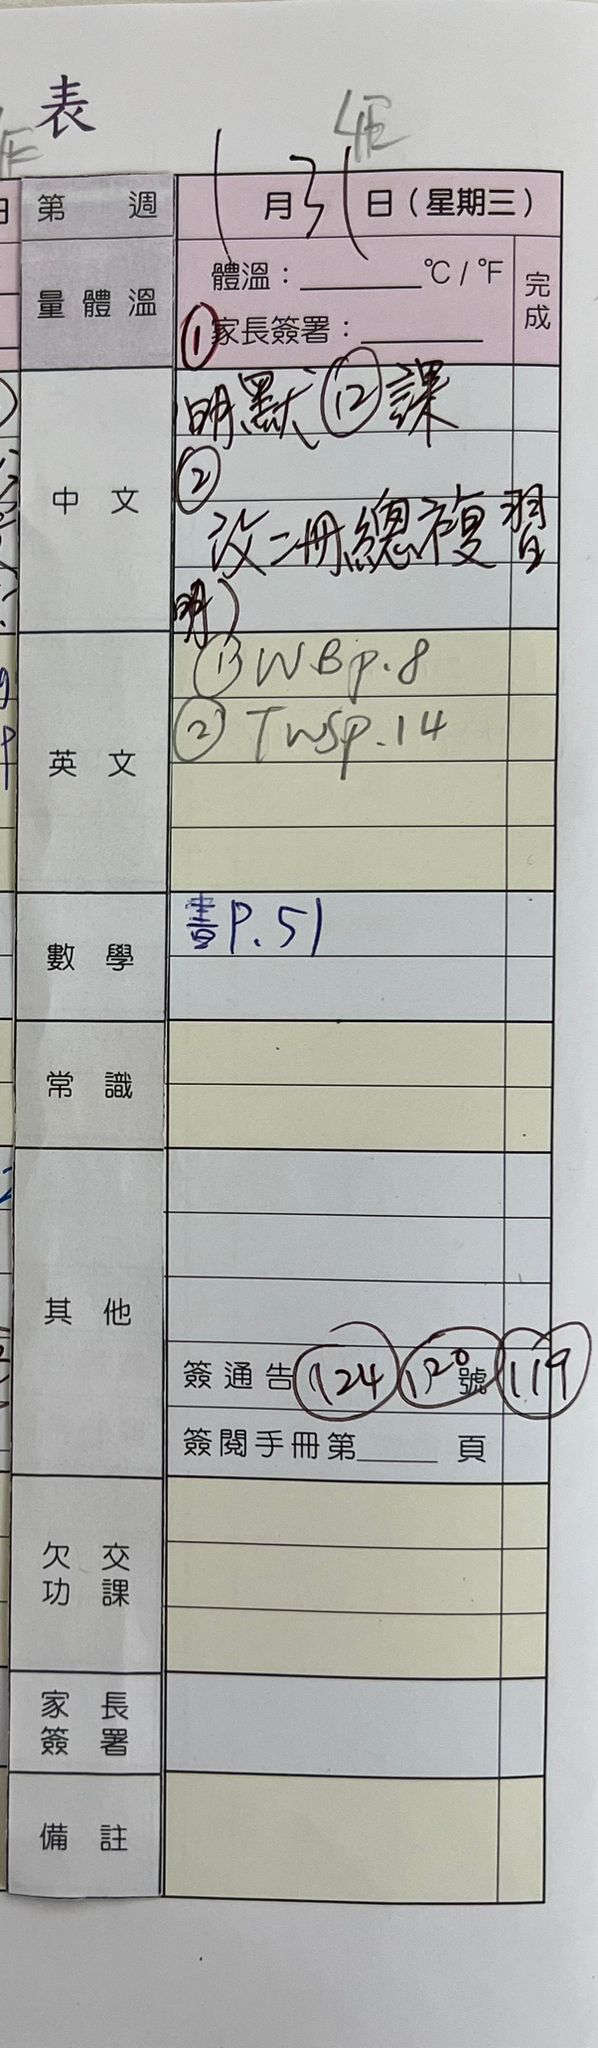 表
第 週
1月31日（星期三）
量體溫
體溫：______℃/℉
①家長簽署：______
完成
中文
明默⑫課
②
改二冊總複習
明)
英文
① WBp.8
② TWSp.14
數學
書P.51
常識
其他
簽通告 124 120號 119
簽閱手冊第____頁
欠交功課
家長簽署
備註